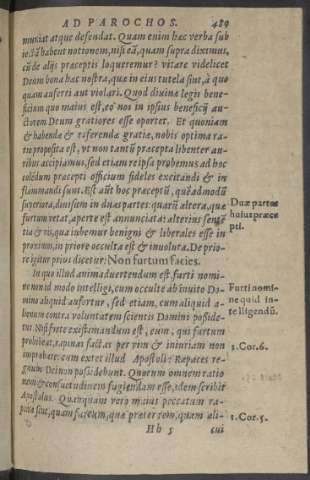 AD PAROCHOS. 489
muniat atque defendat. Quam enim hæc verba sub
iectã habent notionem, nisi eã, quam supra diximus,
cùm de alijs præceptis loqueremur? vitare videlicet
Deum bona hæc nostra, quæ in eius tutela sint, à quo
quam auferri aut violari. Quod diuinæ legis bene-
ficium quo maius est, eò nos in ipsius beneficij au-
ctorem Deum gratiores esse oportet. Et quoniam
& habendæ & referendæ gratiæ, nobis optima ra-
tio proposita est, vt non tantũ præcepta libenter au-
ribus accipiamus, sed etiam re ipsa probemus: ad hoc
colẽdum præcepti officium fideles excitandi & in
flammandi sunt. Est aũt hoc præceptũ, quẽadmodũ
superiora, diuisum in duas partes: quarũ altera, quæ
furtum vetat, aperte est annunciata: alterius sentẽ
tia & vis, qua iubemur benigni & liberales esse in
proximos, in priore occulta est & inuoluta. De prio-
re igitur prius dicetur: Non furtum facies.
In quo illud animaduertendum est, furti nomi-
ne non id modo intelligi, cum occulte ab inuito Do-
mino aliquid aufertur, sed etiam, cum aliquid a-
lienum contra voluntatem scientis Domini posside-
tur. Nisi forte existimandum est, eum, qui furtum
prohibeat, rapinas factas per vim & iniuriam non
improbare: cum extet illud Apostoli: Rapaces re-
gnum Dei non possidebunt. Quorum omnem ratio
nem & consuetudinem fugiendam esse, idem scribit
Apostolus. Quanquam vero maius peccatum ra-
pinæ sint, quam furtum, quæ præter rem, quam ali-
Hh 5 cui
Duæ partes
huius præce
pti.
Furti nomi-
ne quid in-
telligendũ.
1. Cor. 6.
1. Cor. 5.